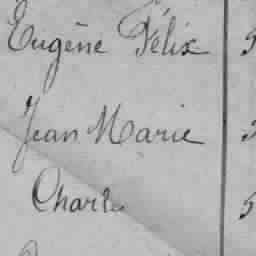 Eugène Félix
Jean Marie
Charles